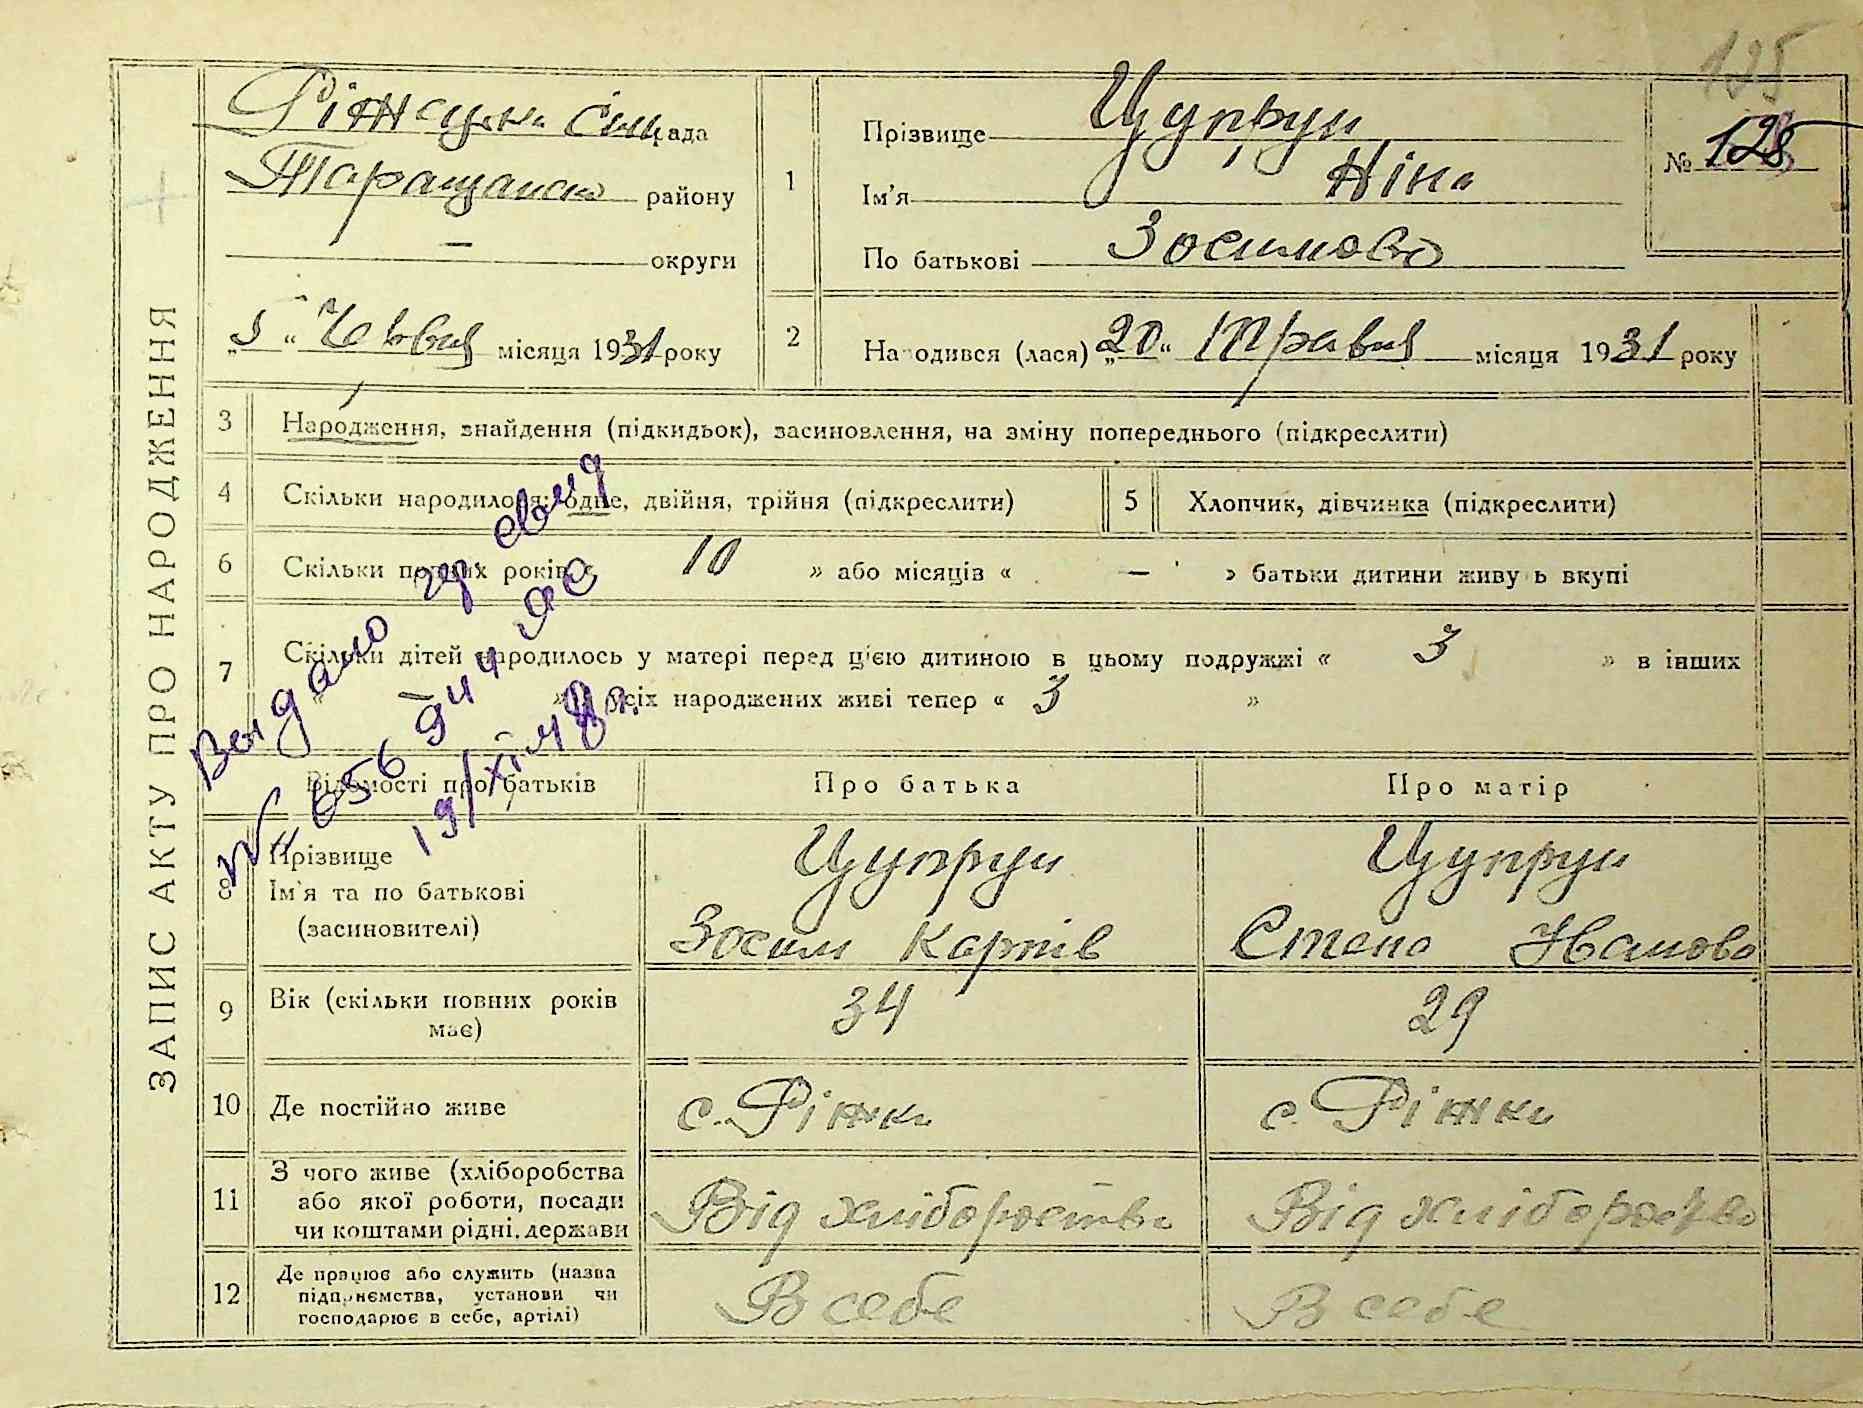 ЗАПИС АКТУ ПРО НАРОДЖЕННЯ
125
рада
Таращанськ району
— округи
„5“ Червня місяця 1931 року
1
Прізвище Цупрун
Ім'я Ніна
По батькові Зосимова
№ 128
2
Народився (лася) „20“ Травня місяця 1931 року
3 Народження, знайдення (підкидьок), засиновлення, на зміну попереднього (підкреслити)
4 Скільки народилося: одне, двійня, трійня (підкреслити)
5 Хлопчик, дівчинка (підкреслити)
6 Скільки повних років « 10 » або місяців « — » батьки дитини живуть вкупі
7 Скільки дітей народилось у матері перед цією дитиною в цьому подружжі « 3 » в інших
« » усіх народжених живі тепер « 3 »
Выдано
19/XI 48 г.
Відомості про батьків Про батька Про матір
8 Прізвище Цупрун Цупрун
Ім'я та по батькові
(засиновителі) Зосим Карпів Степа Иванова
9 Вік (скільки повних років має) 34 29
10 Де постійно живе с. Ріжки с. Ріжки
11 З чого живе (хліборобства
або якої роботи, посади
чи коштами рідні, держави Від хліборобства Від хліборобства
12 Де працює або служить (назва
підприємства, установи чи
господарює в себе, артілі) В себе В себе